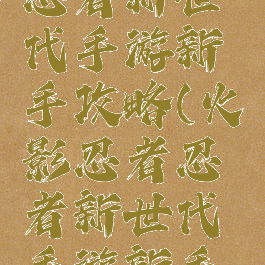 忍者新世
代手游新
手攻略(火
影忍者忍
者新世代
手游新手